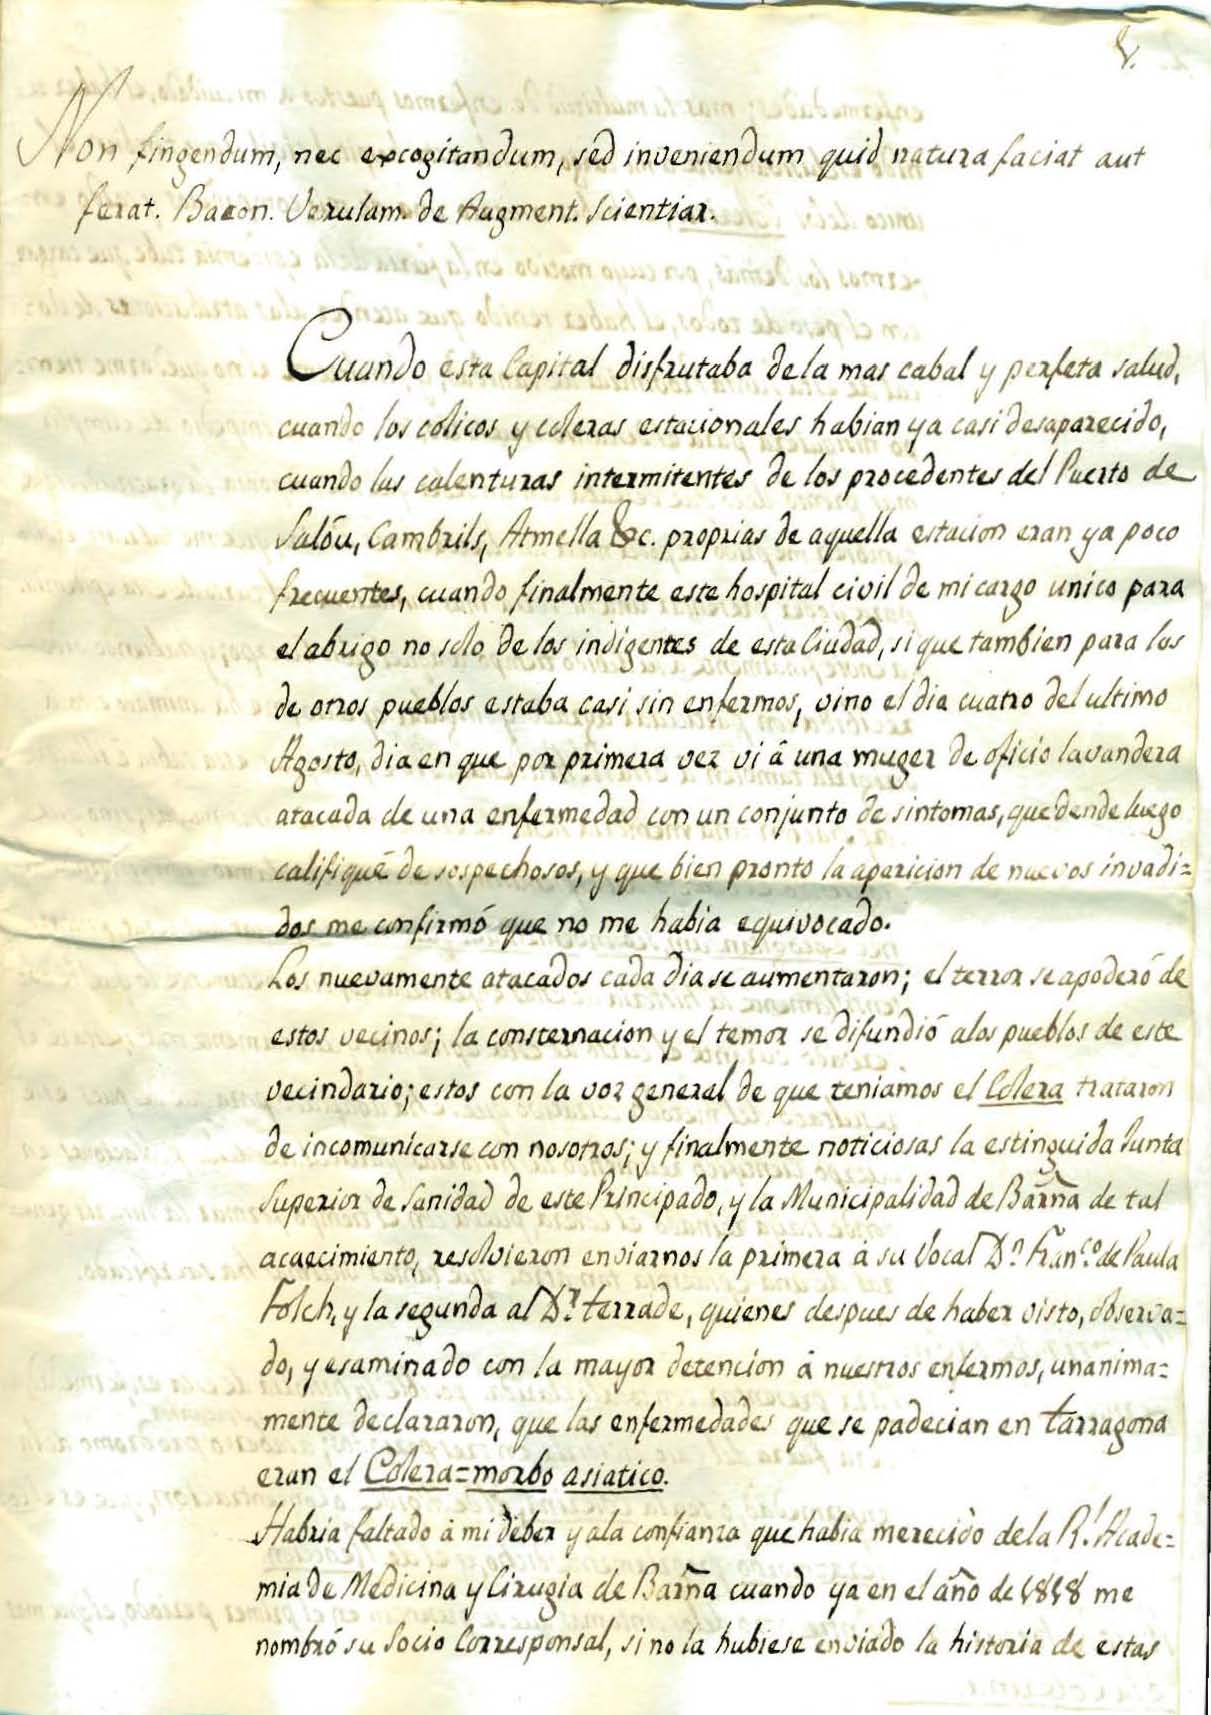 1.
Non fingendum, nec excogitandum, sed inveniendum quid natura faciat aut
ferat. Bacon. Verulam. de Augment. Scientiar.
Cuando esta Capital disfrutaba de la mas cabal y perfeta salud,
cuando los colicos y coleras estacionales habian ya casi desaparecido,
cuando las calenturas intermitentes de los procedentes del Puerto de
Salóu, Cambrils, Atmella &c. proprias de aquella estacion eran ya poco
frecuentes, cuando finalmente este hospital civil de mi cargo unico para
el abrigo no solo de los indigentes de esta Ciudad, si que tambien para los
de otros pueblos estaba casi sin enfermos, vino el dia cuatro del ultimo
Agosto, dia en que por primera vez vi á una muger de oficio lavandera
atacada de una enfermedad con un conjunto de sintomas, que dende luego
califiqué de sospechosos, y que bien pronto la aparicion de nuevos invadi=
dos me confirmó que no me habia equivocado.
Los nuevamente atacados cada dia se aumentaron; el terror se apoderó de
estos vecinos; la consternacion y el temor se difundió a los pueblos de este
vecindario; estos con la voz general de que teniamos el Colera trataron
de incomunicarse con nosotros; y finalmente noticiosas la estinguida Junta
Superior de Sanidad de este Principado, y la Municipalidad de Barña de tal
acaecimiento, resolvieron enviarnos la primera á su Vocal Dn. Franco. de Paula
Folch, y la segunda al Dr. terrade, quienes despues de haber visto, observa=
do, y esaminado con la mayor detencion á nuestros enfermos, unanima=
mente declararon, que las enfermedades que se padecian en tarragona
eran el Colera=morbo asiatico.
Habria faltado á mi deber y a la confianza que habia merecido de la Rl. Acade=
mia de Medicina y Cirugia de Barña cuando ya en el año de 1818 me
nombró su Socio Corresponsal, si no la hubiese enviado la historia de estas